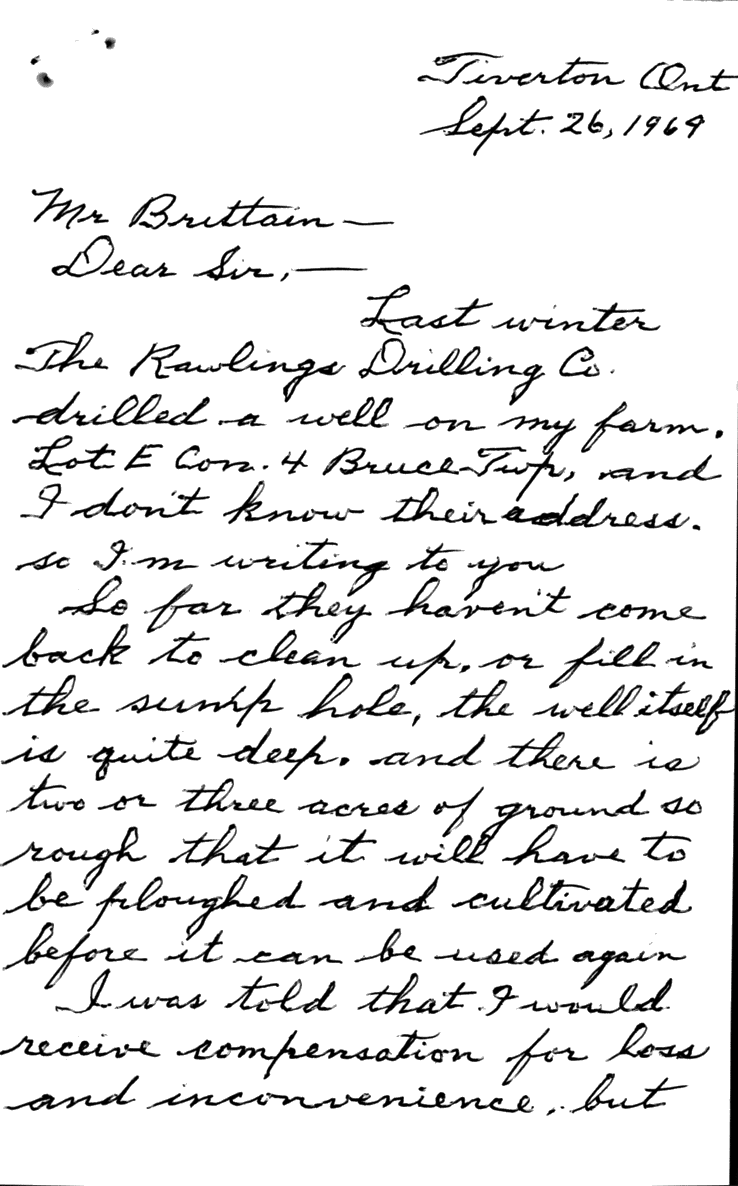 Tiverton Ont
Sept. 26, 1969
Mr Brittain —
Dear Sir, —
Last winter
The Rawlings Drilling Co.
drilled a well on my farm.
Lot E Con. 4 Bruce Twp, and
I don't know their address.
so I'm writing to you
So far they haven't come
back to clean up, or fill in
the sump hole, the well itself
is quite deep. and there is
two or three acres of ground so
rough that it will have to
be ploughed and cultivated
before it can be used again
I was told that I would
receive compensation for loss
and inconvenience, but